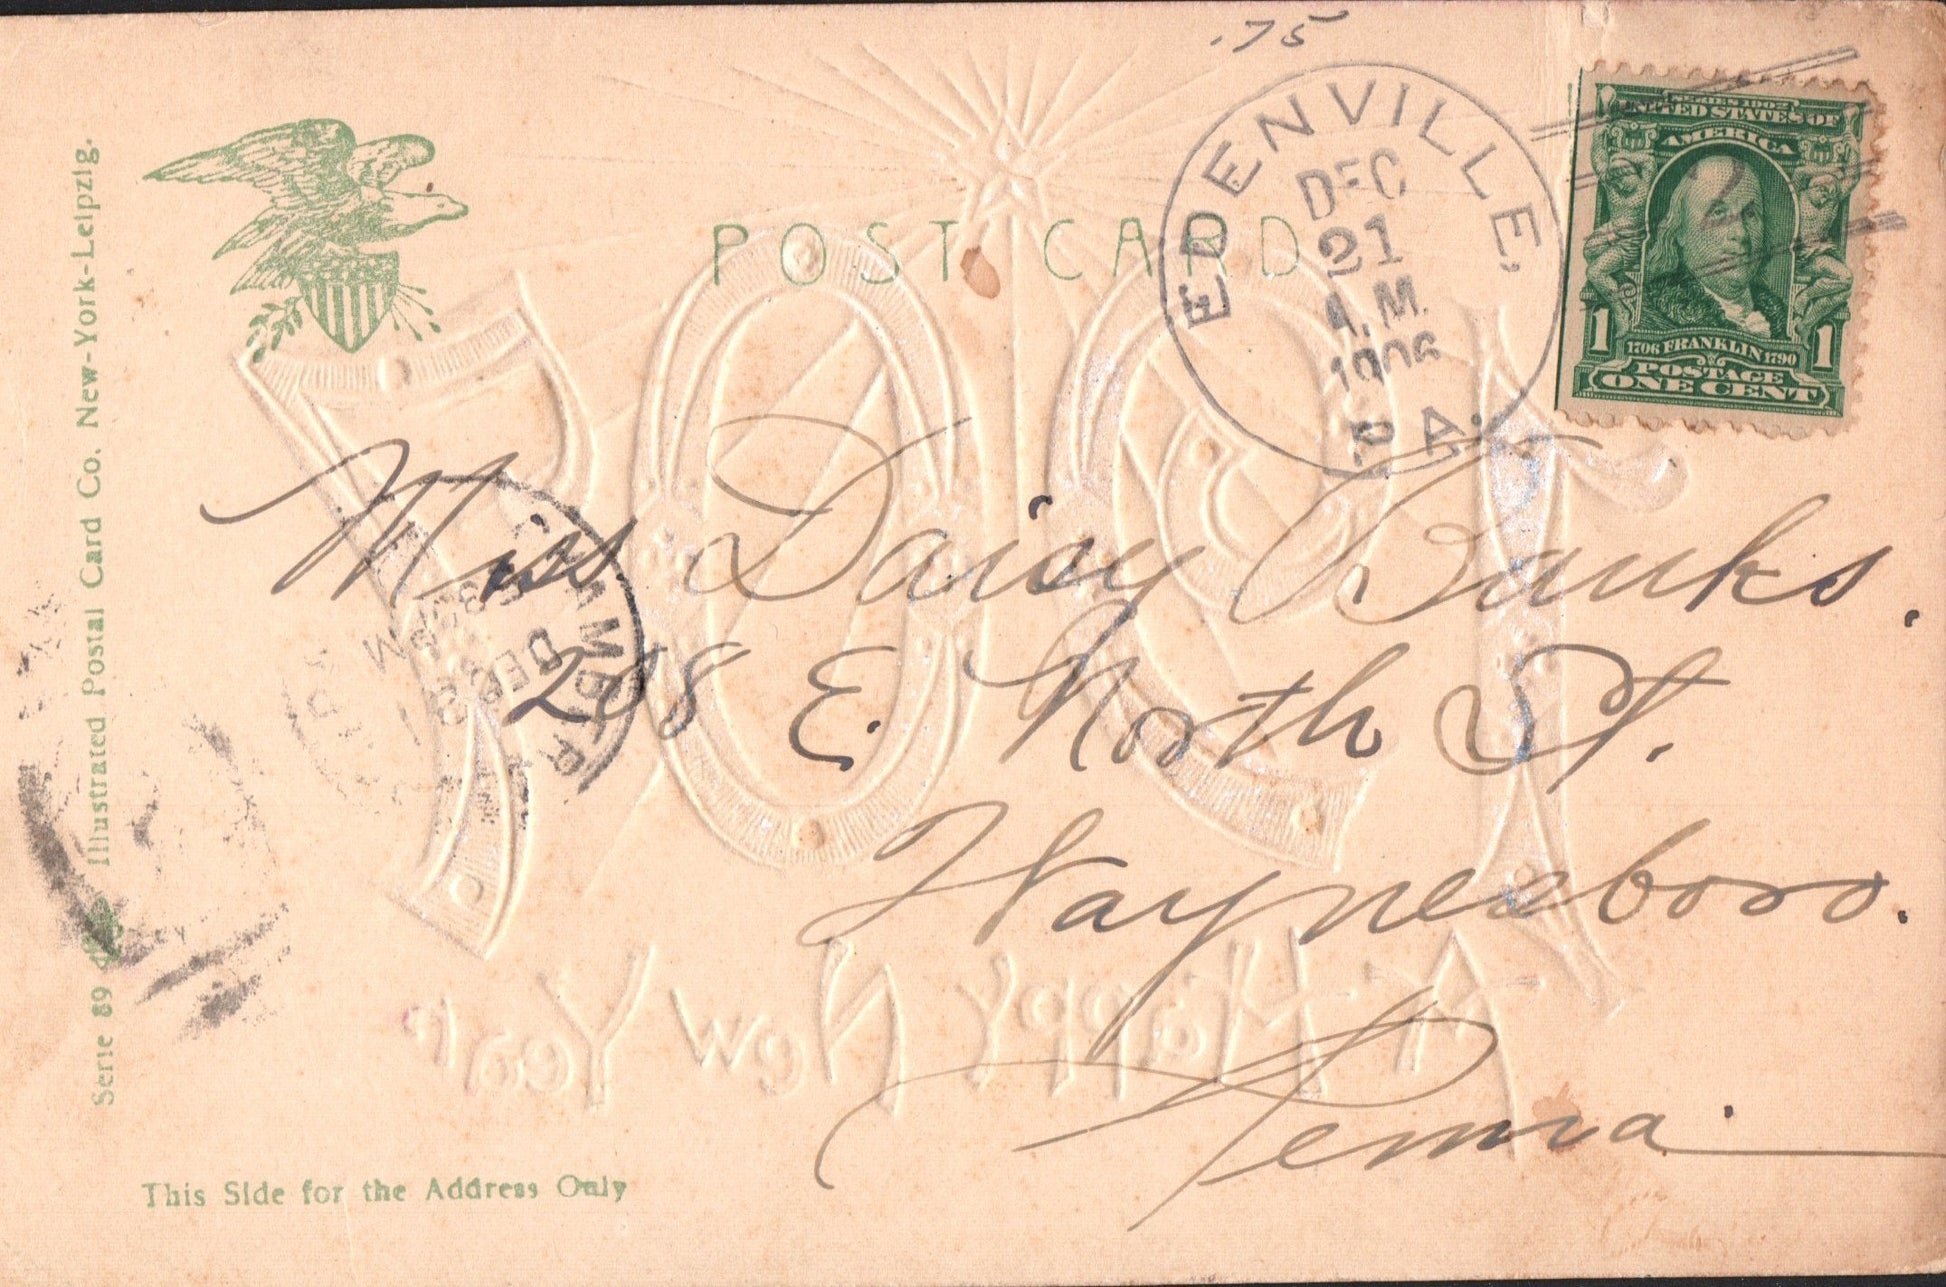 .75
POST CARD
EDENVILLE,
DEC
21
A.M.
1906
PA.
SERIES 1902
UNITED STATES OF
AMERICA
1 1
1706 FRANKLIN 1790
POSTAGE
ONE CENT
Miss Daisy Banks.
208 E. North St.
Waynesboro.
Penna.
A Happy New Year
1907
Serie 89 Illustrated Postal Card Co. New-York-Leipzig.
This Side for the Address Only